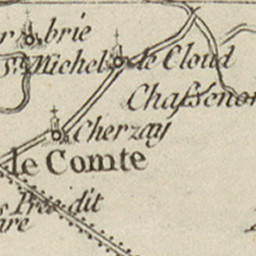 brie
St. Michel de Cloud
Chassenon
Cherzay
le Comte
Pré dit